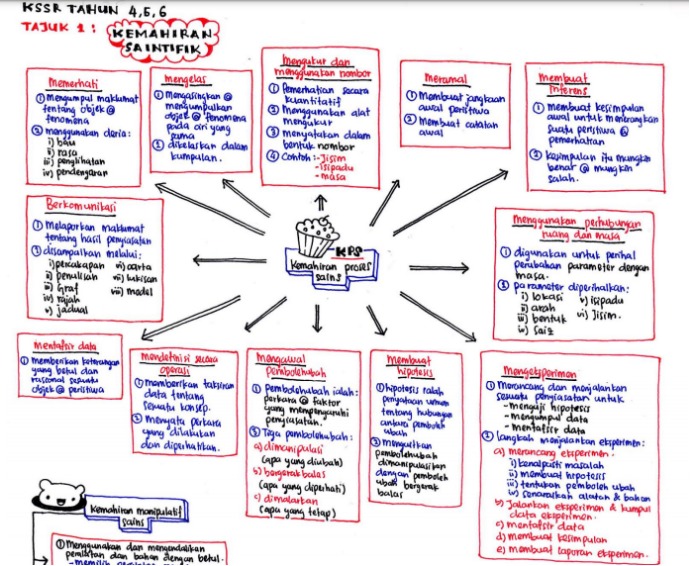 KSSR TAHUN 4,5,6
TAJUK 1:
KEMAHIRAN
SAINTIFIK
Memerhati
① Mengumpul maklumat
tentang objek @
fenomena
② menggunakan deria:
i) bau
ii) rasa
iii) penglihatan
iv) pendengaran
mengelas
① Mengasingkan @
mengumpulkan
objek @ fenomena
pada ciri yang
sama
② dikelaskan dalam
kumpulan.
Mengukur dan
menggunakan nombor
① Pemerhatian secara
kuantitatif
② Menggunakan alat
mengukur
③ menyatakan dalam
bentuk nombor
④ Contoh :- Jisim
- isipadu
- masa
Meramal
① Membuat jangkaan
awal peristiwa
② Membuat catatan
awal
Membuat
Inferens
① membuat kesimpulan
awal untuk menerangkan
suatu peristiwa @
pemerhatian
② kesimpulan itu mungkin
benar @ mungkin
salah.
Berkomunikasi
① melaporkan maklumat
tentang hasil penyiasatan
② disampaikan melalui:
i) percakapan vi) carta
ii) penulisan vii) lukisan
iii) Graf viii) model
iv) rajah
v) jadual
KPS
Kemahiran proses
sains
Menggunakan perhubungan
ruang dan masa
① digunakan untuk perihal
perubahan parameter dengan
masa.
② parameter diperihalkan:
i) lokasi v) isipadu
ii) arah vi) Jisim.
iii) bentuk
iv) saiz
mentafsir data
① memberikan keterangan
yang betul dan
rasional sesuatu
objek @ peristiwa
mendefinisi secara
operasi
① memberikan taksiran
data tentang
sesuatu konsep.
② menyata perkara
yang dilakukan
dan diperhatikan.
Mengawal
pembolehubah
① Pembolehubah ialah:
perkara @ faktor
yang mempengaruhi
penyiasatan.
② Tiga pembolehubah:
a) dimanipulasi
(apa yang diubah)
b) bergerak balas
(apa yang diperhati)
c) dimalarkan
(apa yang tetap)
Membuat
hipotesis
① hipotesis ialah
penyataan umum
tentang hubungan
antara pemboleh
ubah
② Mengaitkan
pembolehubah
dimanipulasikan
dengan pemboleh
ubah bergerak
balas
Mengeksperimen
① Merancang dan menjalankan
sesuatu penyiasatan untuk
- menguji hipotesis
- mengumpul data
- mentafsir data
② langkah menjalankan eksperimen:
a) merancang eksperimen.
i) kenalpasti masalah
ii) membuat hipotesis
iii) tentukan pemboleh ubah
iv) senaraikan alatan & bahan
b) Jalankan eksperimen & kumpul
data eksperimen.
c) mentafsir data
d) membuat kesimpulan
e) membuat laporan eksperimen.
Kemahiran manipulatif
sains
① Menggunakan dan mengendalikan
peralatan dan bahan dengan betul.